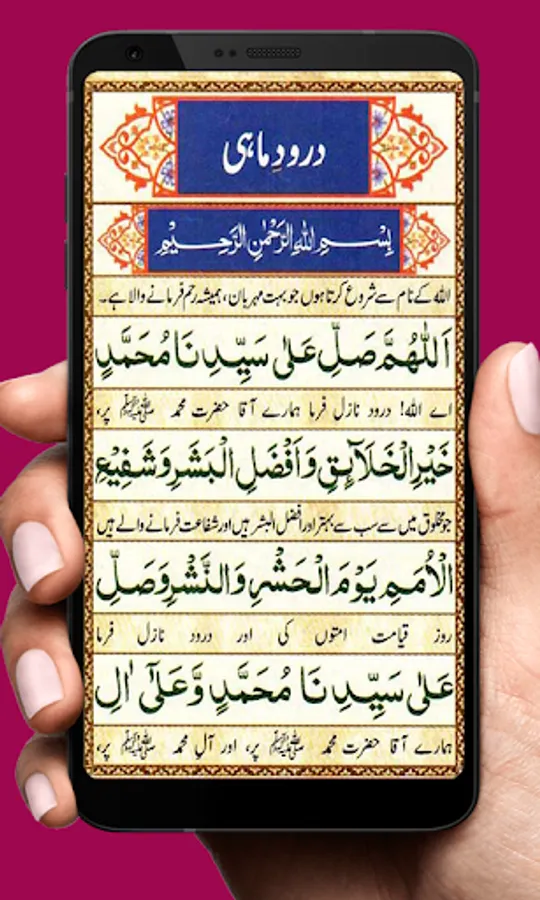 درودِ ماہی
بِسْمِ اللهِ الرَّحْمٰنِ الرَّحِیْمِ
الله کے نام سے شروع کرتا ہوں جو بہت مہربان، ہمیشہ رحم فرمانے والا ہے۔
اَللّٰهُمَّ صَلِّ عَلٰی سَیِّدِنَا مُحَمَّدٍ
اے اللہ! درود نازل فرما ہمارے آقا حضرت محمد ﷺ پر،
خَیْرِ الْخَلَآئِقِ وَاَفْضَلِ الْبَشَرِ وَشَفِیْعِ
جو مخلوق میں سے سب سے بہتر اور افضل البشر ہیں اور شفاعت فرمانے والے ہیں
الْاُمَمِ یَوْمَ الْحَشْرِ وَالنَّشْرِ وَصَلِّ
روز قیامت امتوں کی اور درود نازل فرما
عَلٰی سَیِّدِنَا مُحَمَّدٍ وَّعَلٰٓی اٰلِ
ہمارے آقا حضرت محمد ﷺ پر، اور آلِ محمد ﷺ پر،